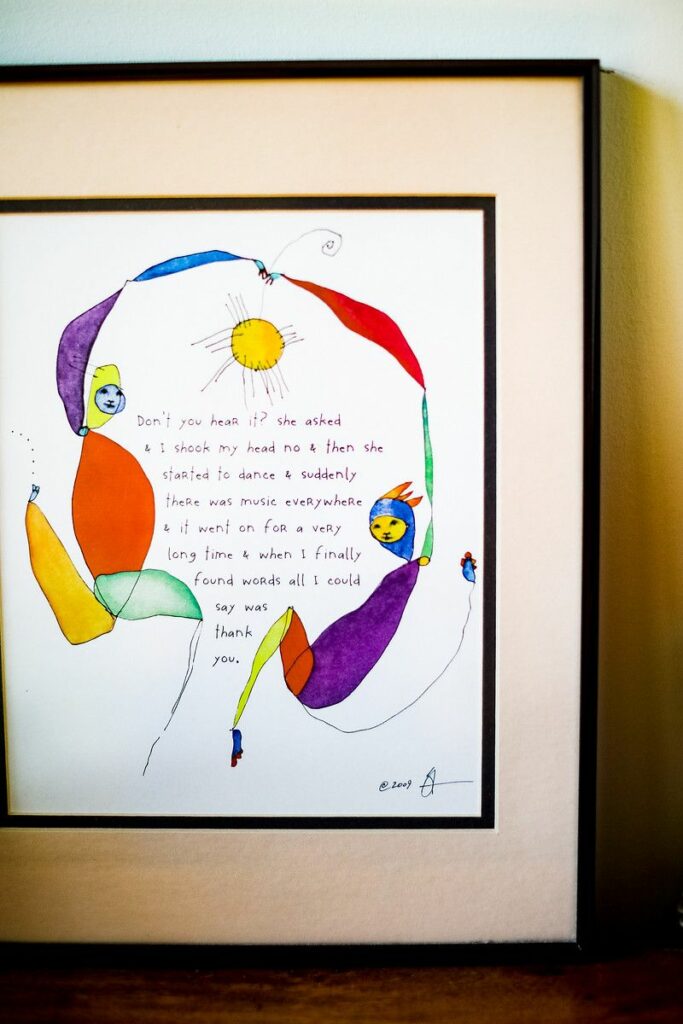 Don't you hear it? she asked
& I shook my head no & then she
started to dance & suddenly
there was music everywhere
& it went on for a very
long time & when I finally
found words all I could
say was
thank
you.
©2009